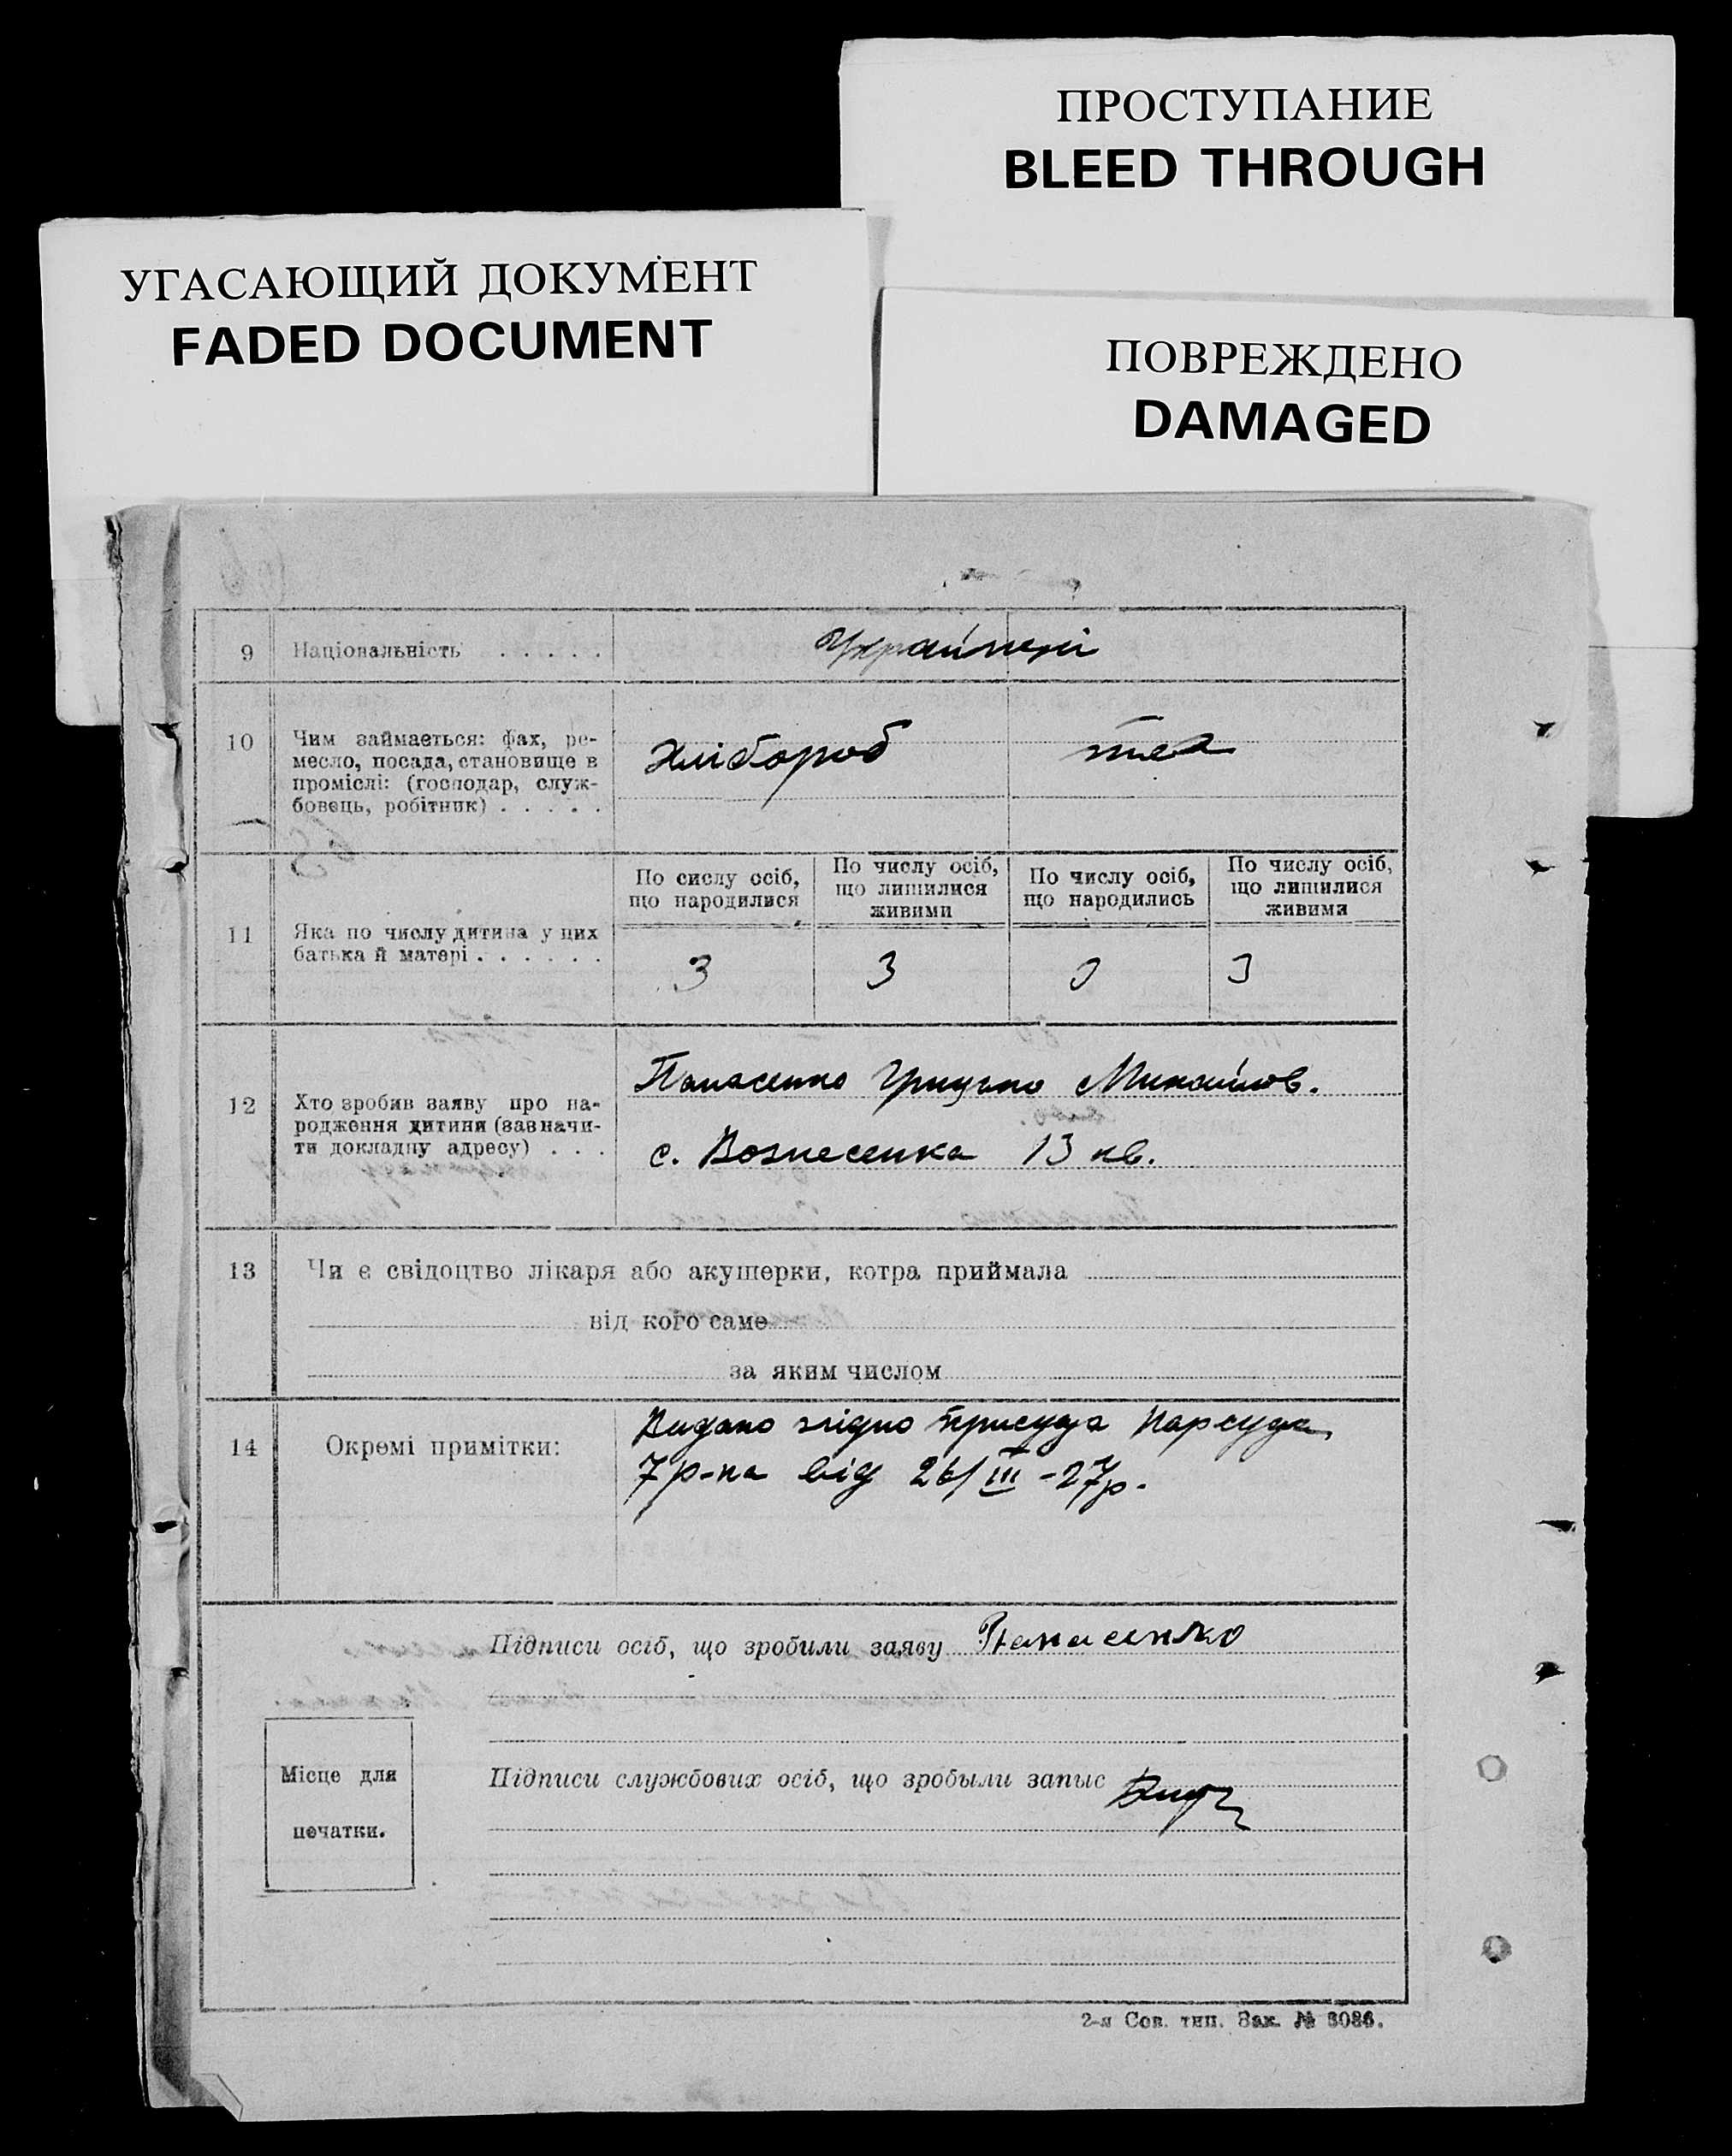 ПРОСТУПАНИЕ
BLEED THROUGH
УГАСАЮЩИЙ ДОКУМЕНТ
FADED DOCUMENT
ПОВРЕЖДЕНО
DAMAGED
9 Національність . . . . . Українці
10 Чим займається: фах, ре-
месло, посада, становище в
проміслі: (господар, служ-
бовець, робітник) . . . . .
Хлібороб теж
11 Яка по числу дитина у цих
батька й матері . . . . . .
По сислу осіб,
що народилися
По числу осіб,
що лишилися
живими
По числу осіб,
що народились
По числу осіб,
що лишилися
живими
3 3 3 3
12 Хто зробив заяву про на-
родження дитини (зазначи-
ти докладну адресу) . . .
Панасенко Грицько Михайлов.
с. Вознесенка 13 кв.
13 Чи є свідоцтво лікаря або акушерки, котра приймала
від кого саме
за яким числом
14 Окремі примітки:
Видано згідно присуда Нарсуда
7 р-на від 26/III-27р.
Підписи осіб, що зробили заяву Панасенко
Місце для
печатки.
Підписи службових осіб, що зробыли запыс
2-я Сов. тип. Зак. № 6086.